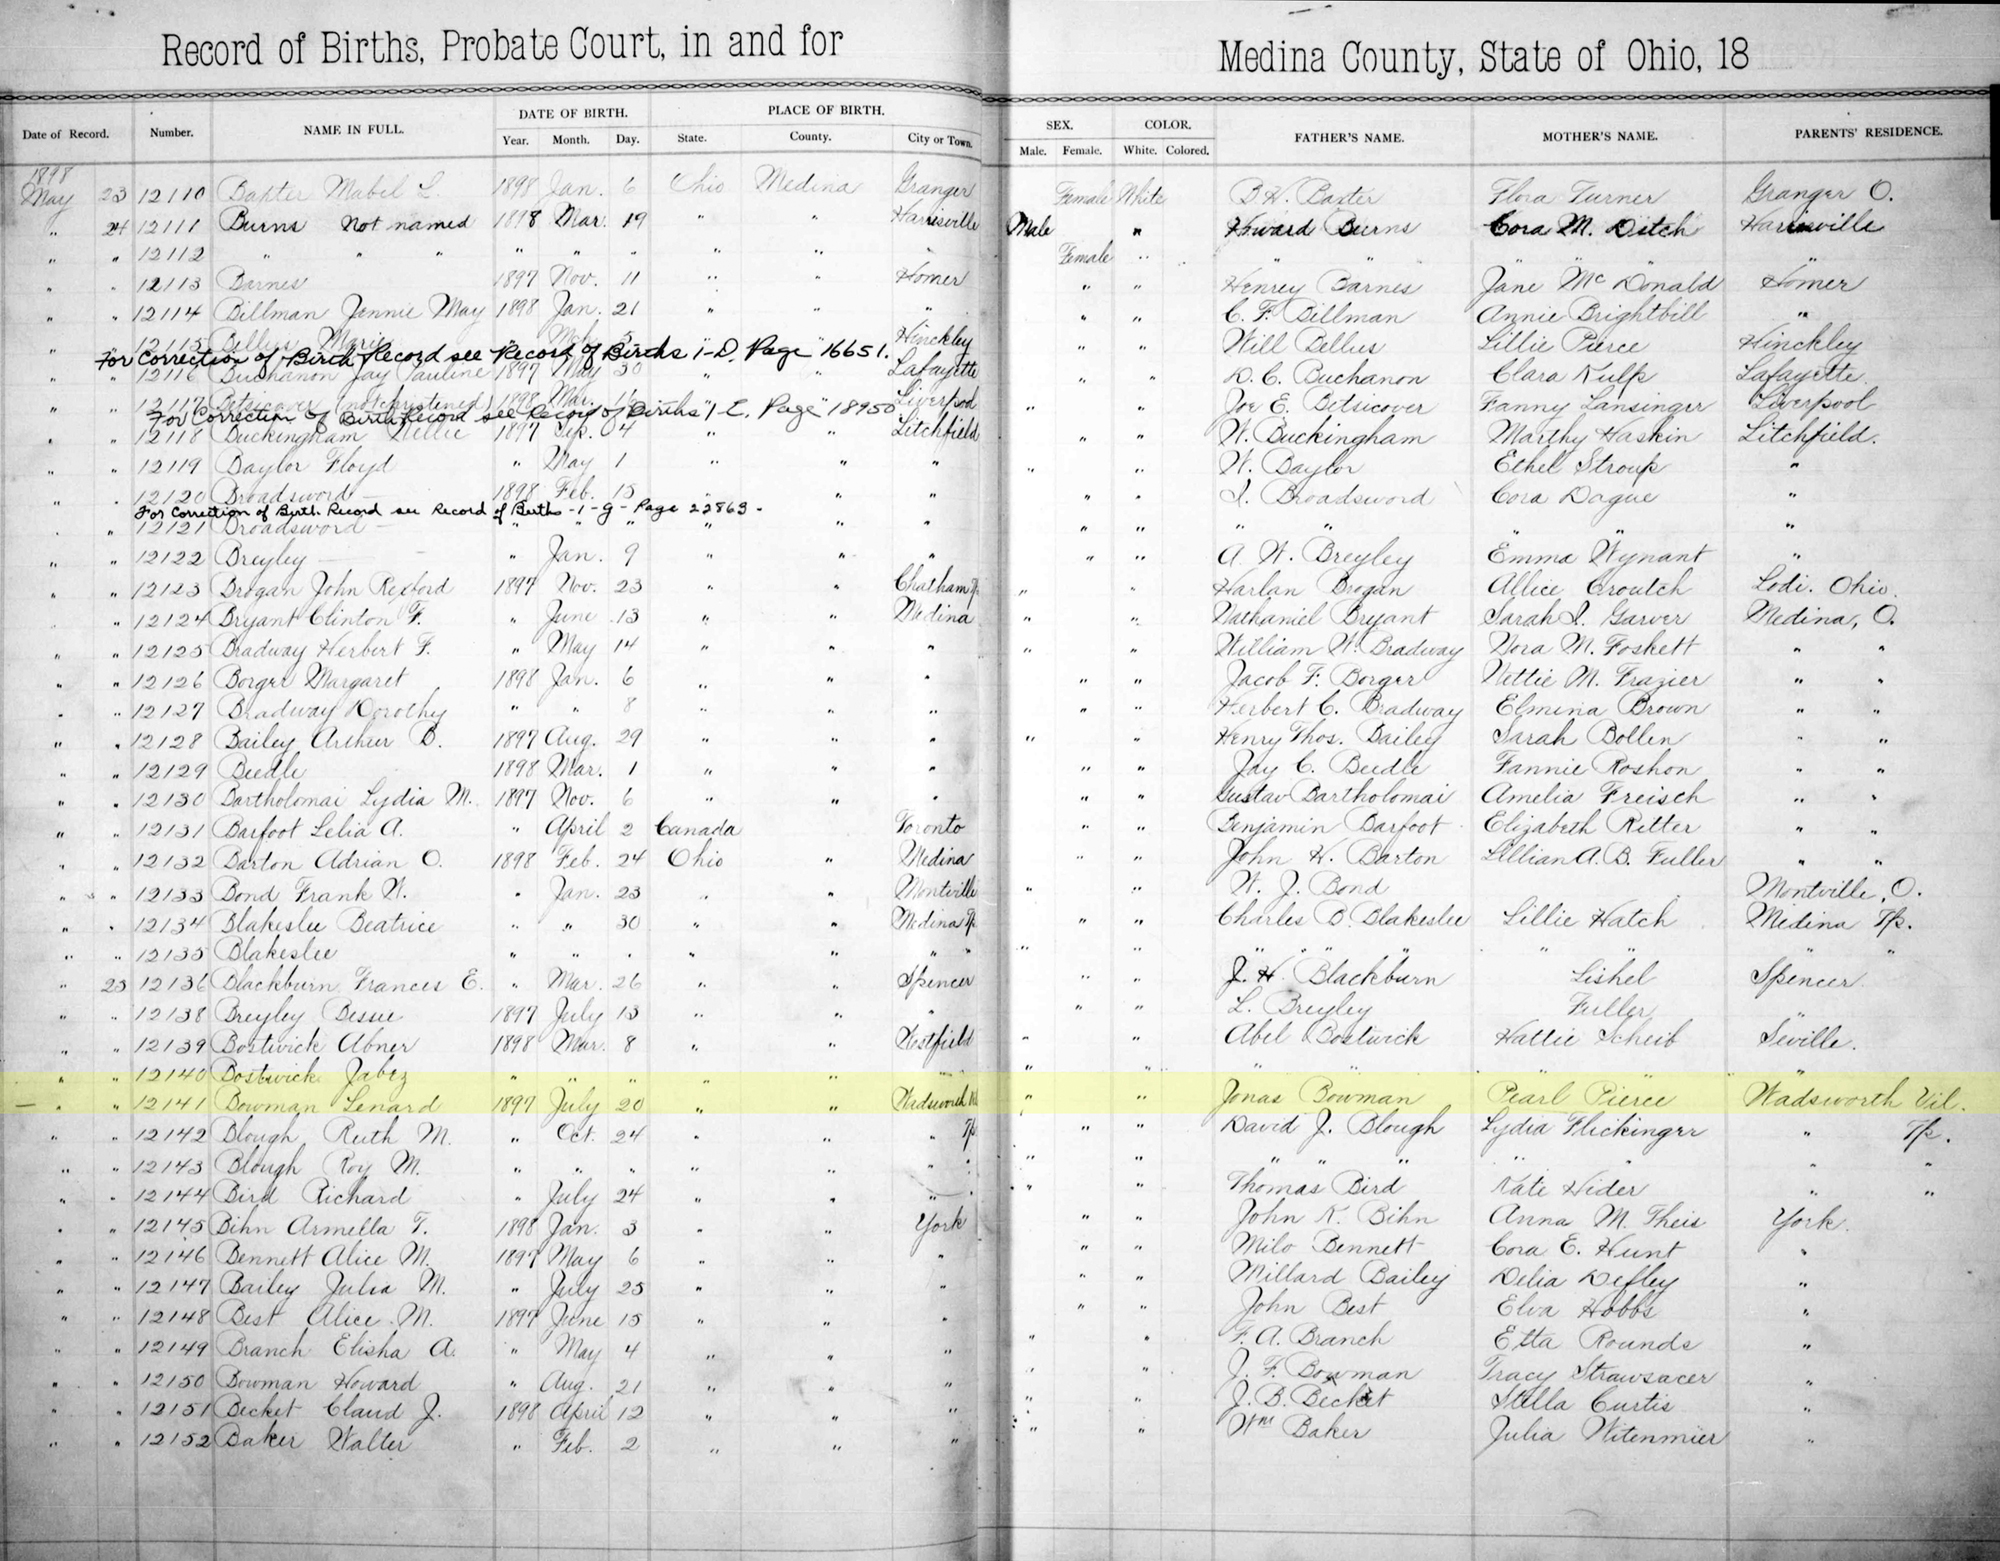 Record of Births, Probate Court, in and for Medina County, State of Ohio, 18
Date of Record. Number. NAME IN FULL. DATE OF BIRTH. Year. Month. Day. PLACE OF BIRTH. State. County. City or Town. SEX. Male. Female. COLOR. White. Colored. FATHER'S NAME. MOTHER'S NAME. PARENTS' RESIDENCE.
1898
May 23 12110 Baxter Mabel L. 1898 Jan. 6 Ohio Medina Granger Female White B. H. Baxter Flora Turner Granger O.
" 24 12111 Burns Not named 1898 Mar. 19 " " Harrisville Male " Howard Burns Cora M. Ditch Harrisville
" " 12112 " " " " " " " " " Female " " " "
" " 12113 Barnes 1897 Nov. 11 " " Homer " " Henrey Barnes Jane McDonald Homer
" " 12114 Billman Jennie May 1898 Jan. 21 " " " " " C. F. Billman Annie Brightbill "
" " 12115 Bellus Marie " 5 " " Hinckley " " Will Bellus Lillie Pierce Hinckley
For Correction of Birth Record see Record of Births 1-D. Page 16651.
" " 12116 Buchanon Jay Pauline 1897 May 30 " " Lafayette " " D. C. Buchanon Clara Kulp Lafayette
" " 12117 Betsicover (not christened) 1898 Mar. " " Liverpool " " Joe E. Betsicover Fanny Lansinger Liverpool
For Correction of Birth Record see Record of Births 1-E. Page 18950
" " 12118 Buckingham Nellie 1897 Sep. 4 " " Litchfield " " W. Buckingham Marthy Haskin Litchfield.
" " 12119 Baylor Floyd " May 1 " " " " " W. Baylor Ethel Stroup "
" " 12120 Broadsword 1898 Feb. 15 " " " " " I. Broadsword Cora Dague "
For Correction of Birth Record see Record of Births -1-G- Page 22863-
" " 12121 Broadsword " " " " " " " " " " "
" " 12122 Breyley " Jan. 9 " " " " " A. W. Breyley Emma Wynant "
" " 12123 Brogan John Rexford 1897 Nov. 23 " " Chatham Tp " " Harlan Brogan Allice Croutch Lodi. Ohio.
" 12124 Bryant Clinton F. " June 13 " " Medina " " Nathaniel Bryant Sarah I. Garver Medina, O.
" " 12125 Bradway Herbert F. " May 14 " " " " " William W. Bradway Dora M. Foskett " "
" " 12126 Borger Margaret 1898 Jan. 6 " " " " " Jacob F. Borger Nettie M. Frazier " "
" " 12127 Bradway Dorothy " " 8 " " " " " Herbert C. Bradway Elmina Brown " "
" " 12128 Bailey Arthur B. 1897 Aug. 29 " " " " " Henry Thos. Bailey Sarah Bollen " "
" " 12129 Beedle 1898 Mar. 1 " " " " " Jay C. Beedle Fannie Roshon " "
" " 12130 Bartholomai Lydia M. 1897 Nov. 6 " " " " " Gustav Bartholomai Amelia Freisch " "
" " 12131 Barfoot Lelia A. " April 2 Canada Toronto " " Benjamin Barfoot Elizabeth Ritter " "
" " 12132 Barton Adrian O. 1898 Feb. 24 Ohio " Medina " " John H. Barton Lillian A. B. Fuller " "
" " 12133 Bond Frank W. " Jan. 23 " " Montville " " W. J. Bond Montville, O.
" " 12134 Blakeslee Beatrice " " 30 " " Medina Tp " " Charles B. Blakeslee Lillie Hatch Medina Tp.
" " 12135 Blakeslee " " " " " " " " " " " " " " " "
" 25 12136 Blackburn Frances E. " Mar. 26 " " Spencer " " J. H. Blackburn Lishel Spencer
" " 12138 Breyley Bessie 1897 July 13 " " " " " L. Breyley Fuller "
" " 12139 Bostwick Abner 1898 Mar. 8 " " Westfield " " Abel Bostwick Hattie Scheib Seville.
" " 12140 Bostwick Jabez " " " " " " " " " " " "
" " 12141 Bowman Lenard 1897 July 20 " " Wadsworth Vil " " Jonas Bowman Pearl Pierce Wadsworth Vil.
" " 12142 Blough Ruth M. " Oct. 24 " " " Tp " " David J. Blough Lydia Flickinger " Tp.
" " 12143 Blough Roy M. " " " " " " " " " " " " " " " "
" " 12144 Bird Richard " July 24 " " " " " Thomas Bird Kate Hider " "
" " 12145 Bihn Armella T. 1898 Jan. 3 " " York " " John K. Bihn Anna M. Theis York.
" " 12146 Bennett Alice M. 1897 May 6 " " " " " Milo Bennett Cora E. Hunt "
" " 12147 Bailey Julia M. " July 25 " " " " " Millard Bailey Delia Defley "
" " 12148 Best Alice M. 1897 June 15 " " " " " John Best Elva Hobbs "
" " 12149 Branch Elisha A. " May 4 " " " " " F. A. Branch Etta Rounds "
" " 12150 Bowman Howard " Aug. 21 " " " " " J. F. Bowman Tracy Strawsacer "
" " 12151 Becket Claud J. 1898 April 12 " " " " " J. B. Becket Stella Curtis "
" " 12152 Baker Walter " Feb. 2 " " " " " Wm Baker Julia Witenmier "